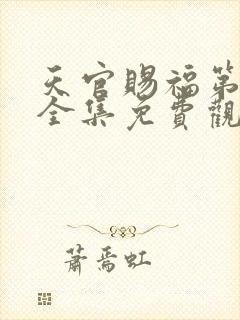 天官賜福第
全集免費觀
蕭焉虹